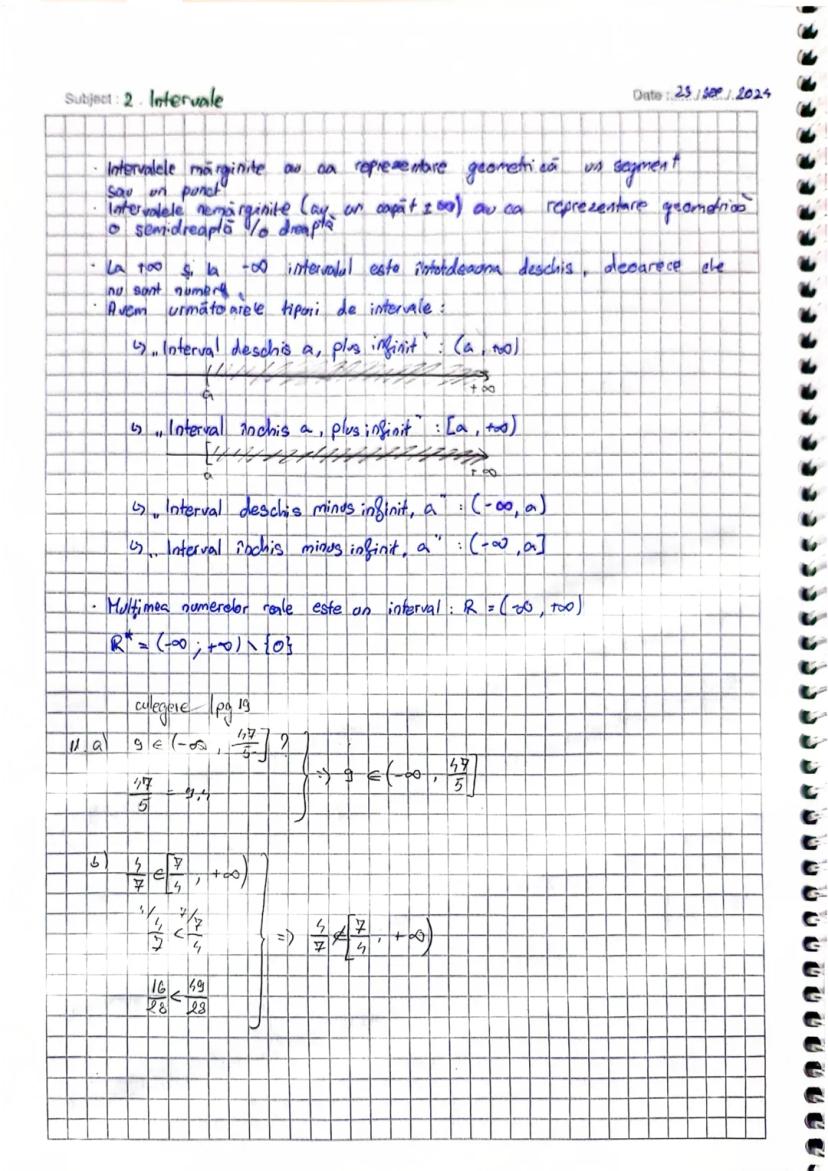 Subject : 2. Intervale
Date : 23 / sep / 2024
· Intervalele mărginite au ca reprezentare geometrică un segment
sau un punct
· Intervalele nemărginite (au un capăt ±∞) au ca reprezentare geometrică
o semidreaptă / o dreaptă
· La +∞ și la -∞ intervalul este întotdeauna deschis, deoarece ele
nu sunt numere.
· Avem următoarele tipuri de intervale :
↳ „Interval deschis a, plus infinit" : (a, +∞)
a +∞
↳ „Interval închis a, plus infinit" : [a, +∞)
[
a +∞
↳ „Interval deschis minus infinit, a" : (-∞, a)
↳ „Interval închis minus infinit, a" : (-∞, a]
· Mulțimea numerelor reale este un interval : R = (-∞, +∞)
R* = (-∞ ; +∞) \ {0}
culegere / pg 19
11. a) 9 ∈ (-∞, 47/5] ? } => 9 ∈ (-∞, 47/5]
47/5 = 9,4
b) 4/7 ∈ [7/4, +∞)
4/ 4/7 < 7/ 7/4 } => 4/7 ∉ [7/4, +∞)
16/28 < 49/28